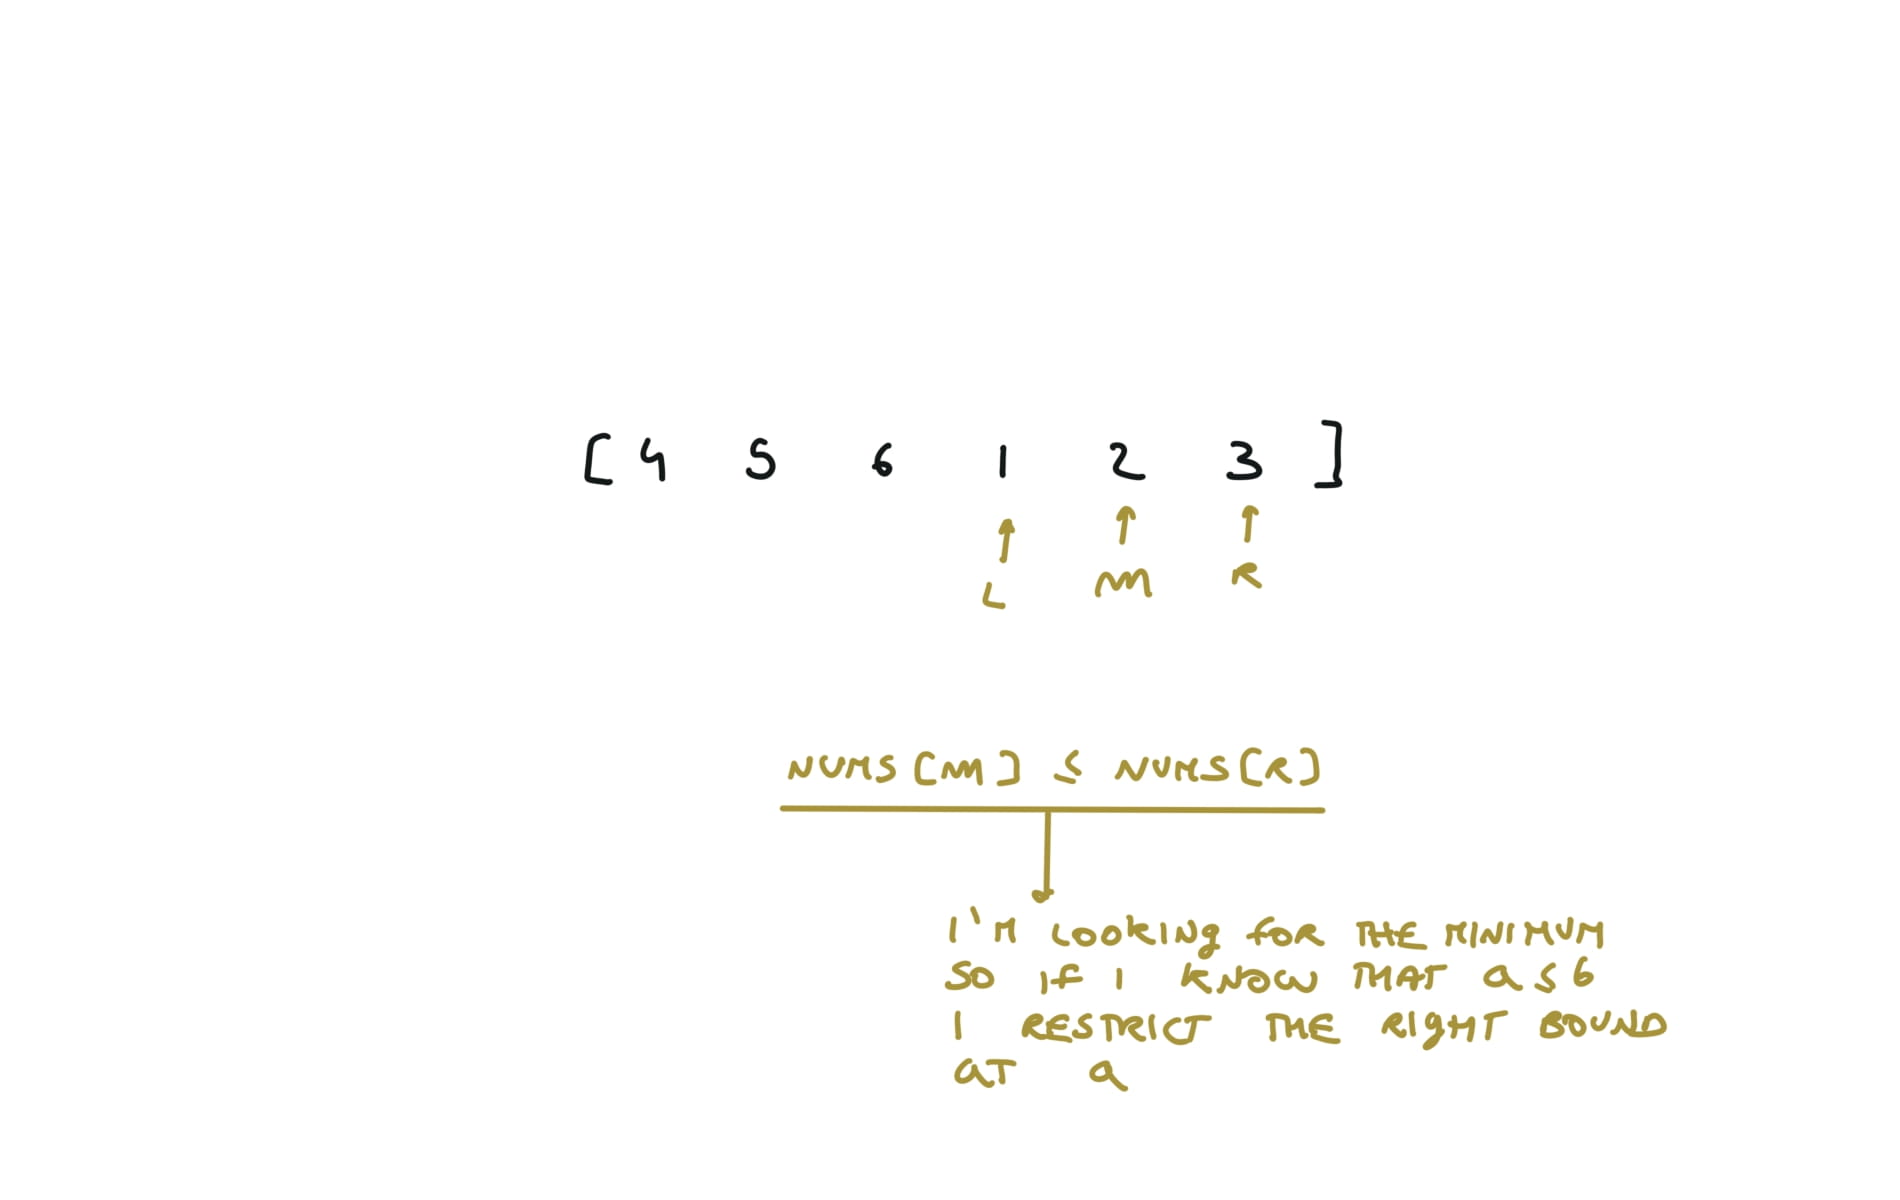 [ 4 5 6 1 2 3 ]
L M R
NUMS [M] ≤ NUMS[R]
I'M LOOKING FOR THE MINIMUM
SO IF I KNOW THAT a ≤ 6
I RESTRICT THE RIGHT BOUND
AT a